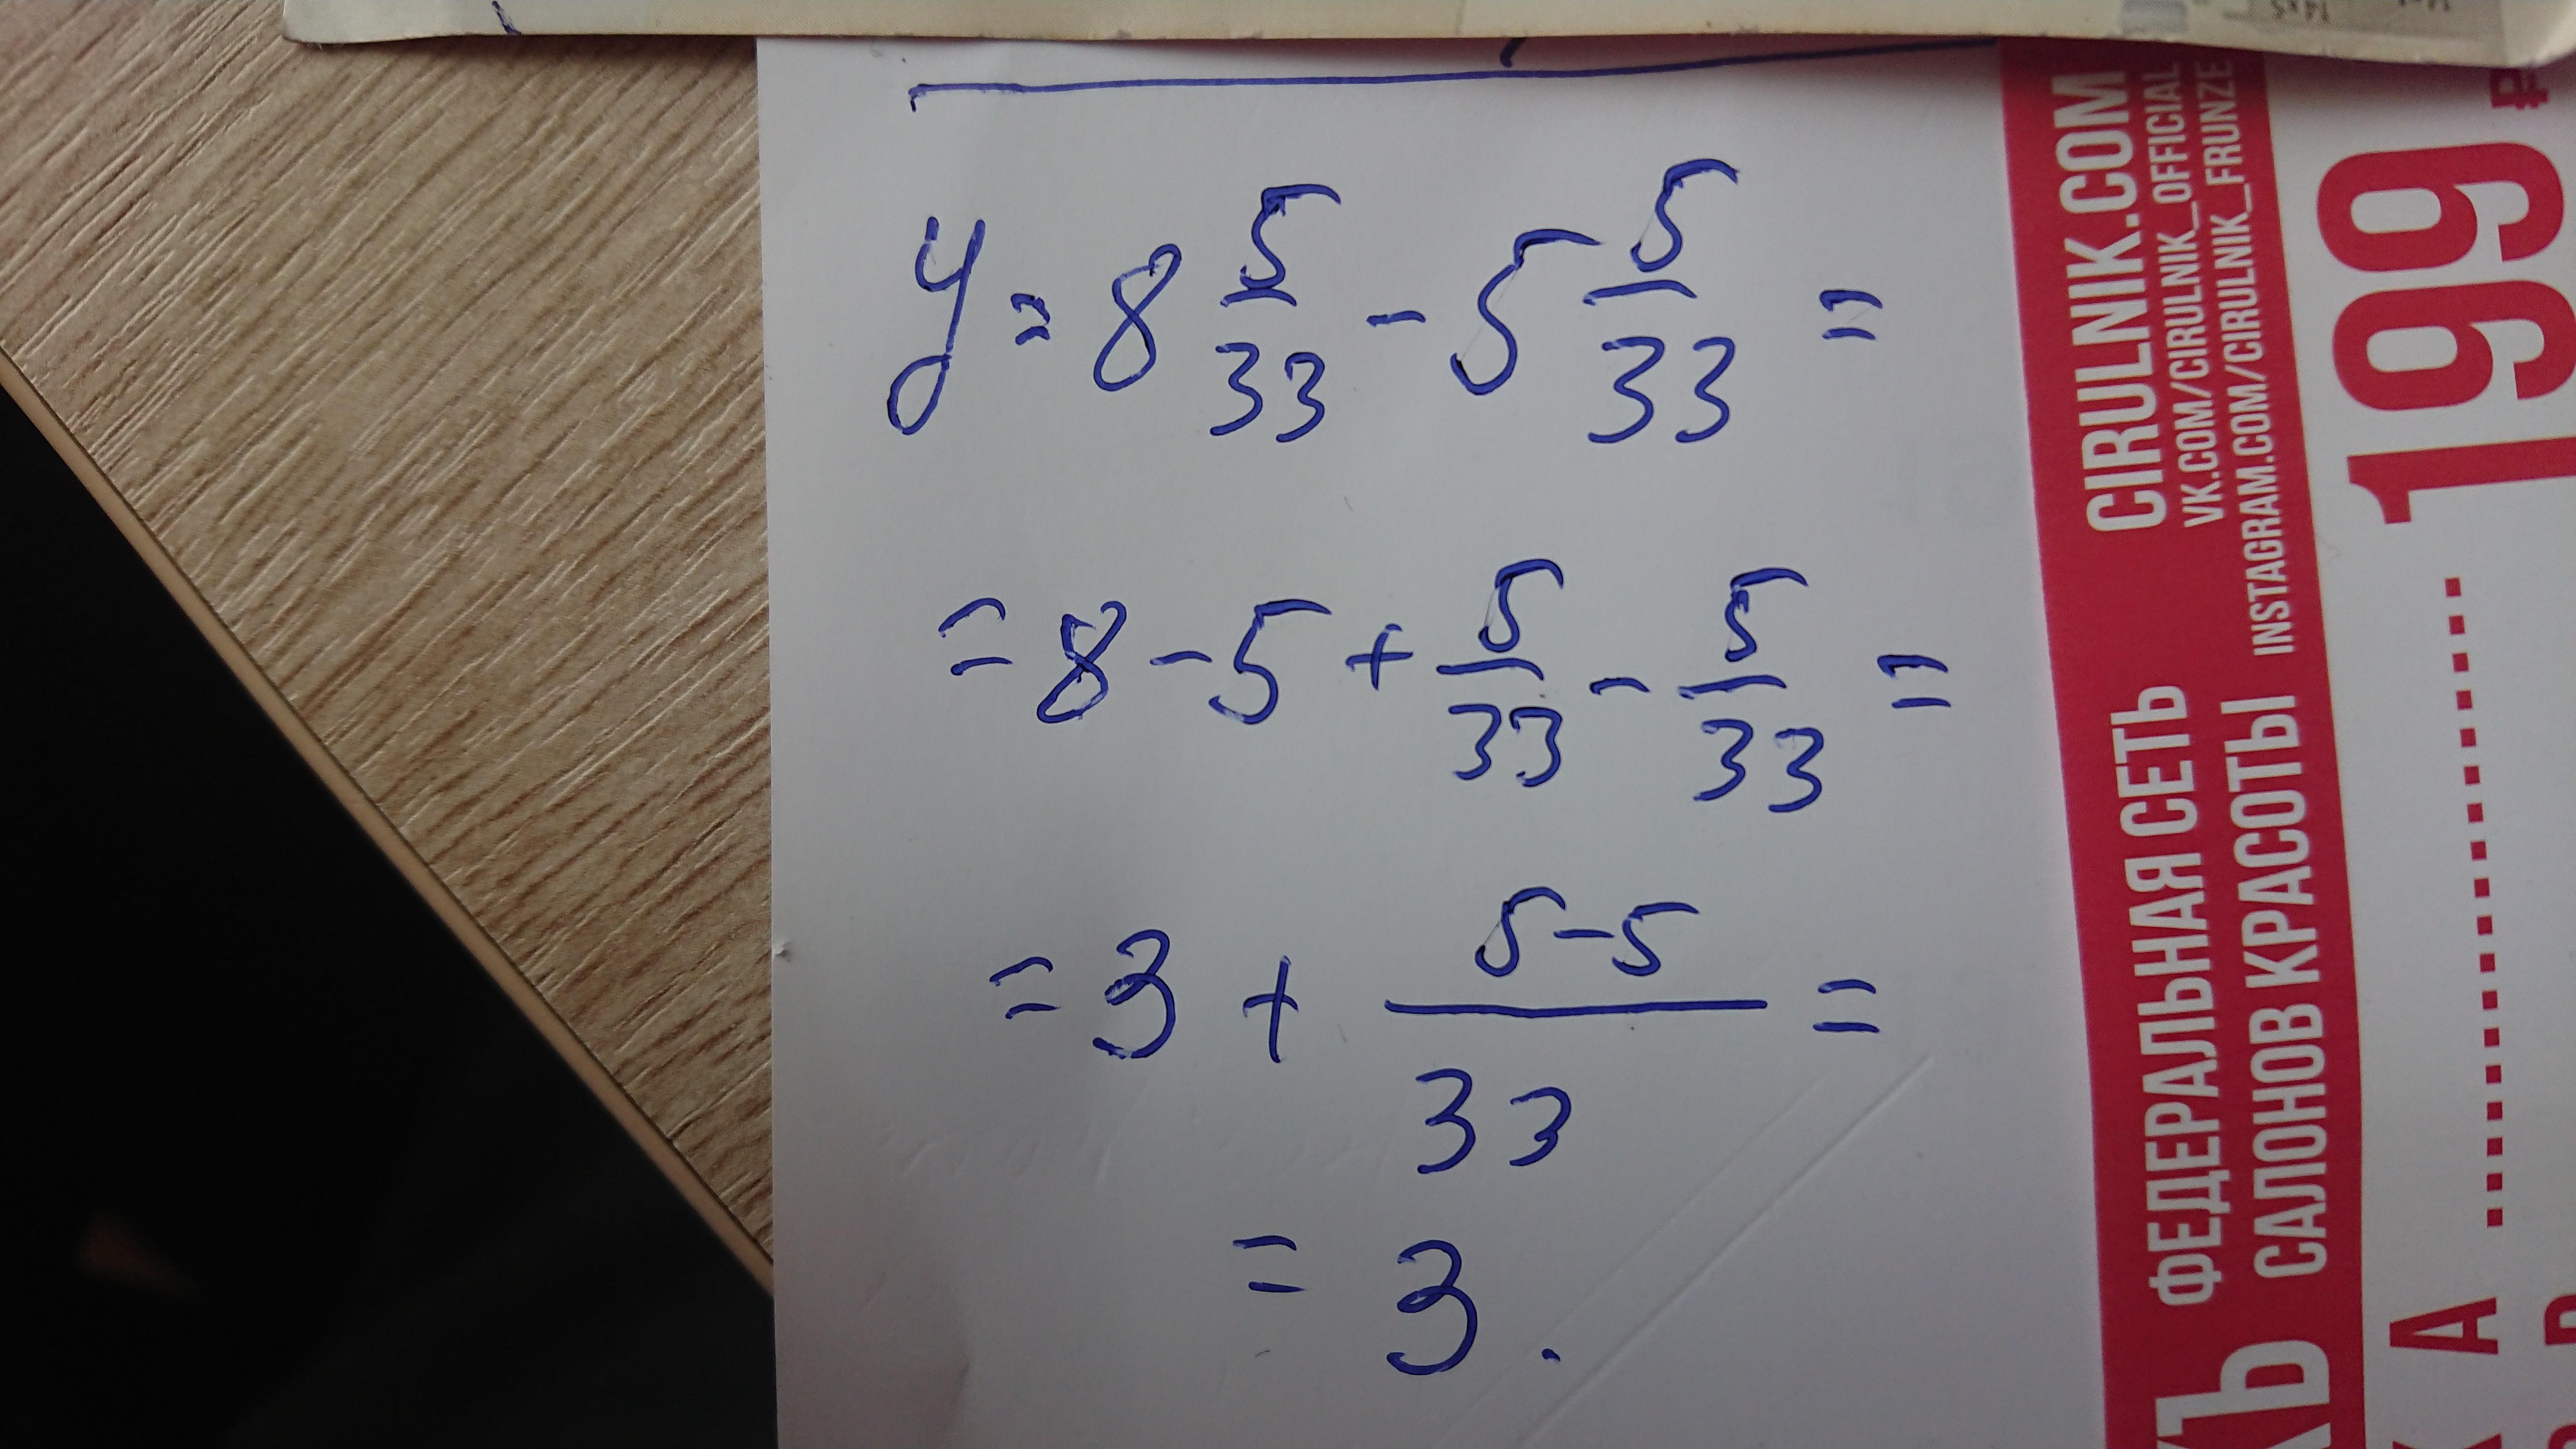 y = 8 5/33 - 5 5/33 =
= 8 - 5 + 5/33 - 5/33 =
= 3 + (5-5)/33 =
= 3.
CIRULNIK.COM
VK.COM/CIRULNIK_OFFICIAL
INSTAGRAM.COM/CIRULNIK_FRUNZE
ФЕДЕРАЛЬНАЯ СЕТЬ
САЛОНОВ КРАСОТЫ
199